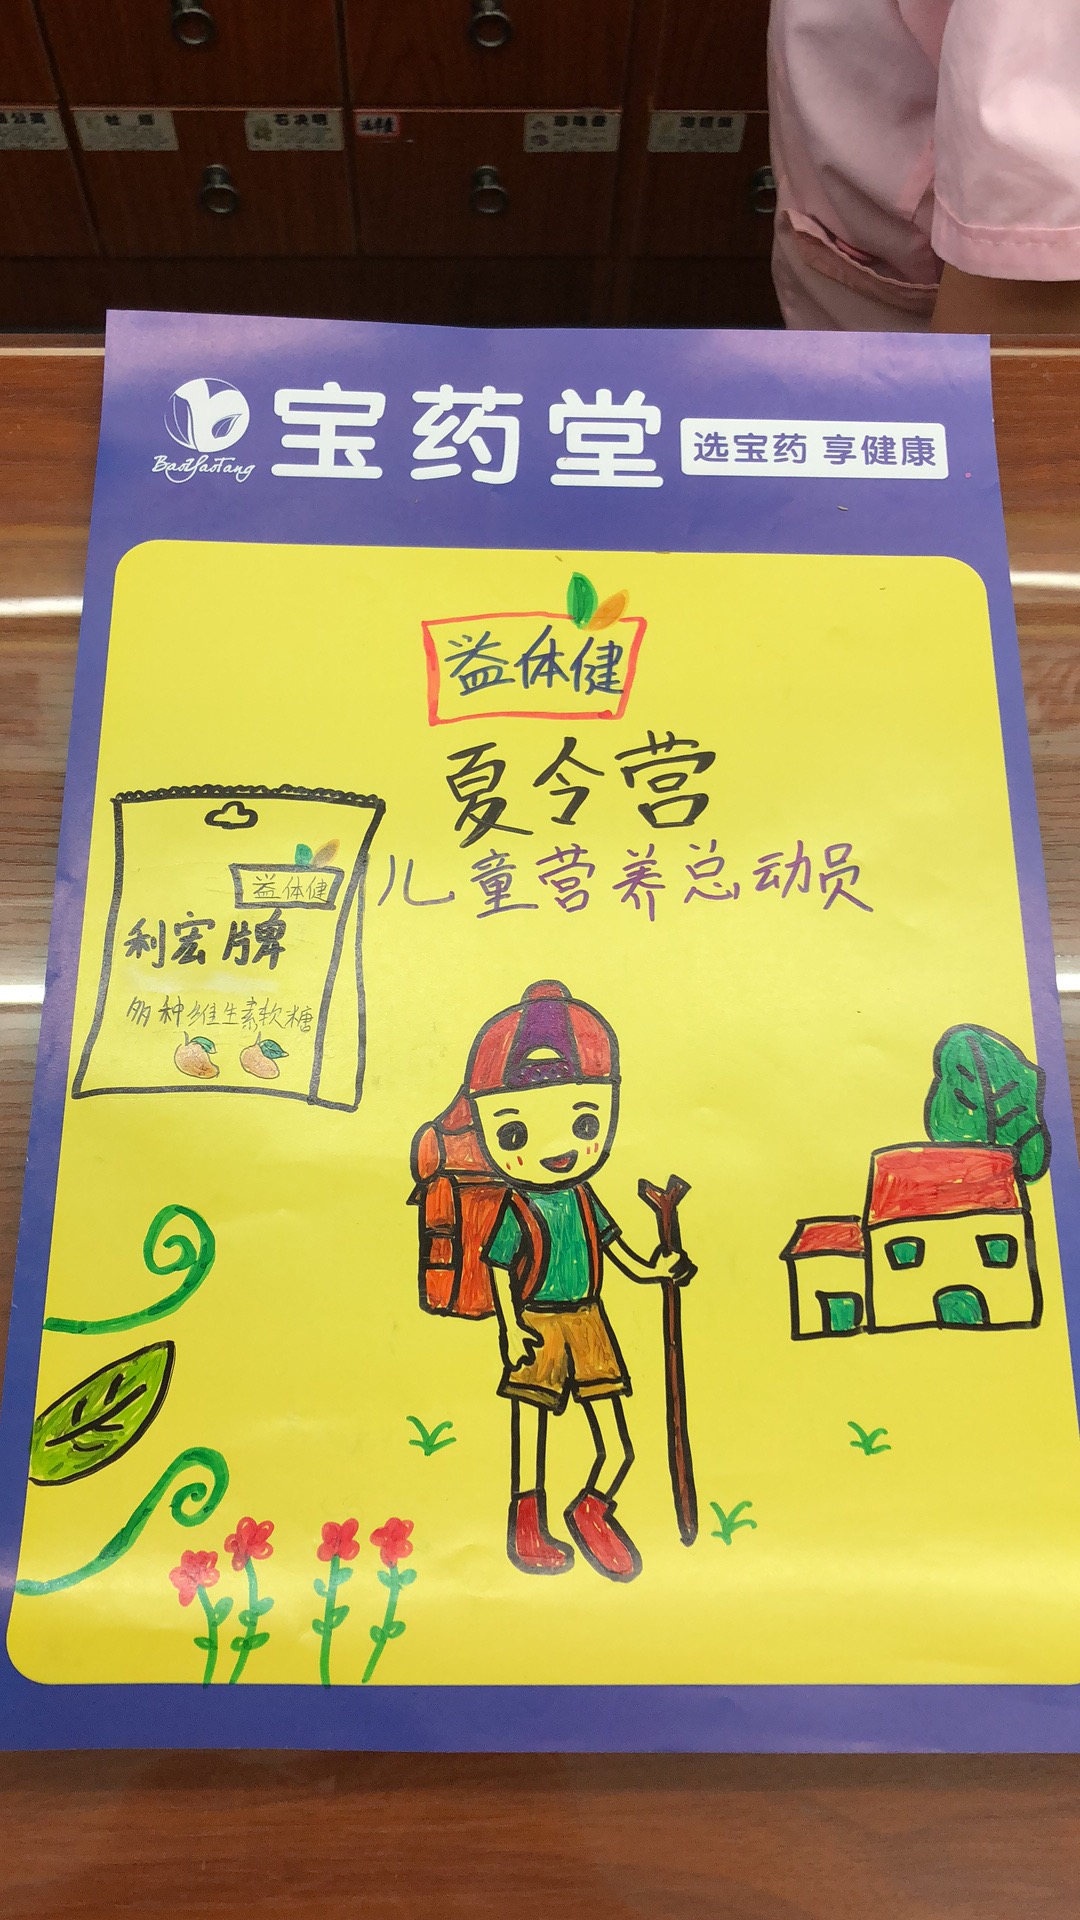 石决明
BaoYaoTang
宝药堂
选宝药 享健康
益体健
夏令营
儿童营养总动员
益体健
利宏牌
多种维生素软糖